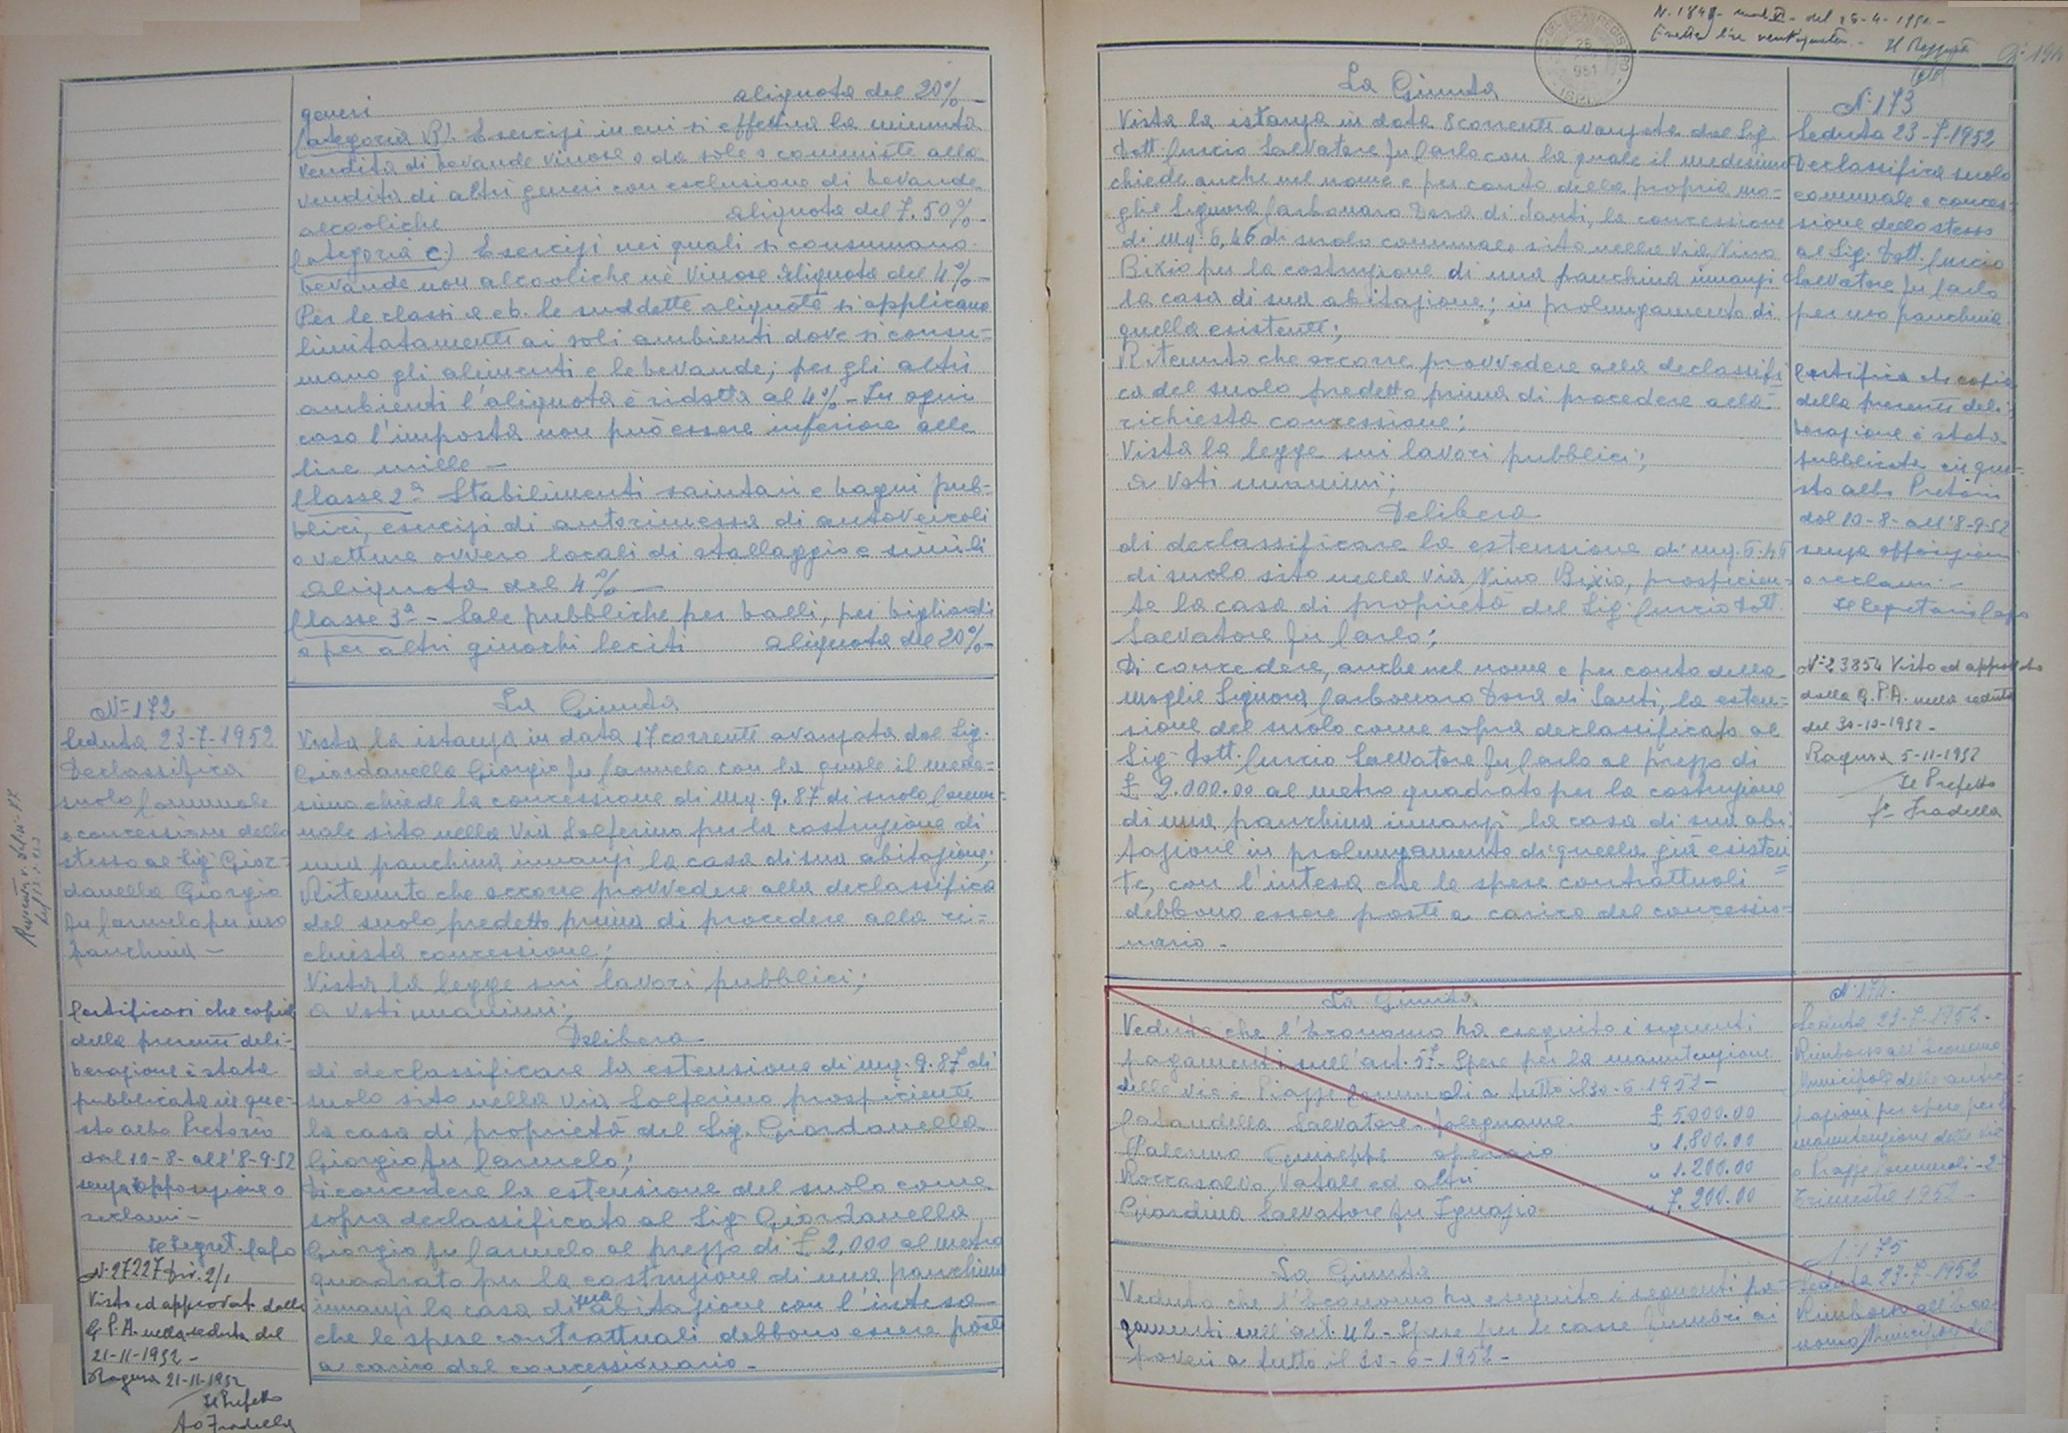 generi aliquota del 20% -
Categoria B). Esercizi in cui si effettua la minuta
vendita di bevande vinose o da sole o commiste alla
vendita di altri generi con esclusione di bevande
alcooliche aliquota del 7.50% -
Categoria c.) Esercizi nei quali si consumano
bevande non alcooliche nè vinose aliquota del 4% -
Per le classi a e b. le suddette aliquote si applicano
limitatamente ai soli ambienti dove si consu-
mano gli alimenti e le bevande; per gli altri
ambienti l'aliquota è ridotta al 4% - In ogni
caso l'imposta non può essere inferiore alle
lire mille -
Classe 2ª Stabilimenti sanitari e bagni pub-
blici, esercizi di autorimessa di autoveicoli
o vetture ovvero locali di stallaggio e simili
aliquota del 4% -
Classe 3ª - Sale pubbliche per balli, per bigliardi
o per altri giuochi leciti aliquota del 20% -
N= 172
Seduta 23-7-1952
Declassifica
suolo Comunale
e concessione dello
stesso al Sig. Gior-
danella Giorgio
fu Carmelo per uso
panchina -
Certificasi che copia
della presente deli-
berazione è stata
pubblicata in que-
sto albo Pretorio
dal 10-8- all'8-9-52
senza opposizione o
reclami -
Il Segret. Capo
N. 27227 Div. 2/1
Visto ed approvat. dalla
G.P.A. nella seduta del
21-11-1952 -
Ragusa 21-11-1952
Il Prefetto
La Giunta
Vista la istanza in data 17 corrente avanzata dal Sig.
Giordanella Giorgio fu Carmelo con la quale il mede-
simo chiede la concessione di mq. 9.87 di suolo Comu-
nale sito nella Via Solferino per la costruzione di
una panchina innanzi la casa di sua abitazione;
Ritenuto che occorre provvedere alla declassifica
del suolo predetto prima di procedere alla ri-
chiesta concessione;
Vista la legge sui lavori pubblici;
a voti unanimi;
Delibera
di declassificare la estensione di mq. 9.87 di
suolo sito nella via Solferino prospiciente
la casa di proprietà del Sig. Giordanella
Giorgio fu Carmelo;
Di concedere la estensione del suolo come
sopra declassificato al Sig. Giordanella
Giorgio fu Carmelo al prezzo di £ 2.000 al metro
quadrato per la costruzione di una panchina
innanzi la casa di sua abitazione con l'intesa
che le spese contrattuali debbono essere poste
a carico del concessionario -
del 26-4-1951 -
La Giunta
Vista la istanza in data 8 corrente avanzata dal Sig.
Dott. Curcio Salvatore fu Carlo con la quale il medesimo
chiede anche nel nome e per conto della propria mo-
glie Signora Carbonaro Dora di Santi, la concessione
di mq. 6,46 di suolo comunale sito nella Via Nino
Bixio per la costruzione di una panchina innanzi
la casa di sua abitazione; in prolungamento di
quella esistente;
Ritenuto che occorre provvedere alla declassifi
ca del suolo predetto prima di procedere alla
richiesta concessione;
Vista la legge sui lavori pubblici;
a voti unanimi;
Delibera
di declassificare la estensione di mq. 6.46
di suolo sito nella Via Nino Bixio, prospicien-
te la casa di proprietà del Sig. Curcio Dott.
Salvatore fu Carlo;
Di concedere, anche nel nome e per conto della
moglie Signora Carbonaro Dora di Santi, la esten-
sione del suolo come sopra declassificato al
Sig. Dott. Curcio Salvatore fu Carlo al prezzo di
£ 2.000.00 al metro quadrato per la costruzione
di una panchina innanzi la casa di sua abi
tazione in prolungamento di quella già esisten
te, con l'intesa che le spese contrattuali =
debbono essere poste a carico del concessio-
nario -
N. 173
Seduta 23-7-1952
Declassifica suolo
comunale e conces-
sione dello stesso
al Sig. Dott. Curcio
Salvatore fu Carlo
per uso panchina.
Certifico che copia
della presente deli-
berazione è stata
pubblicata in que-
sto albo Pretorio
dal 10-8- all'8-9-52
senza opposizioni
o reclami -
Il Segretario Capo
N. 23854 Visto ed approvato
dalla G.P.A. nella seduta
del 30-10-1952 -
Ragusa 5-11-1952
Il Prefetto
La Giunta
Veduto che l'Economo ha eseguito i seguenti
pagamenti sull'art. 57 - Spese per la manutenzione
delle vie e Piazze Comunali a tutto il 30-6-1952 -
Cataudella Salvatore - falegname £ 5.000.00
Palermo Giuseppe operaio " 1,800.00
Roccasalva Natale ed altri " 1.200.00
Giardina Salvatore fu Ignazio " 7.200.00
N. 174
Seduta 23-7-1952 -
Rimborso all'Economo
Municipale delle antici-
pazioni per spese per la
manutenzione delle vie
e Piazze Comunali - 2°
Trimestre 1952 -
La Giunta
Veduto che l'Economo ha eseguito i seguenti pa-
gamenti sull'art. 42 - Spese per le casse funebri ai
poveri a tutto il 30-6-1952 -
N. 175
Seduta 23-7-1952
Rimborso all'Eco-
nomo Municipale del